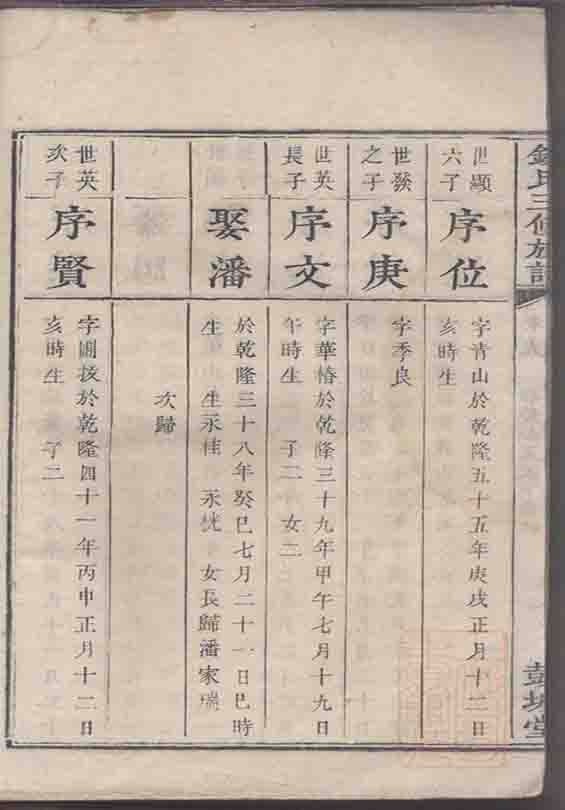 氏三修族
堂
世顯
六子
序位
字青山於乾隆五十五年庚戌正月十二日
亥時生
世發
之子
序庚
字季良
世英
長子
序文
字華椿於乾隆三十九年甲午七月十九日
午時生 子二 女二
娶潘
於乾隆三十八年癸巳七月二十一日巳時
生 生永桂 永 女長歸潘家瑞
次歸
世英
次子
序賢
字圃拔於乾隆四十一年丙申正月十二日
亥時生 子二